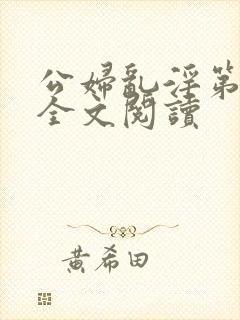 公婦亂淫第
全文閱讀
黃希田